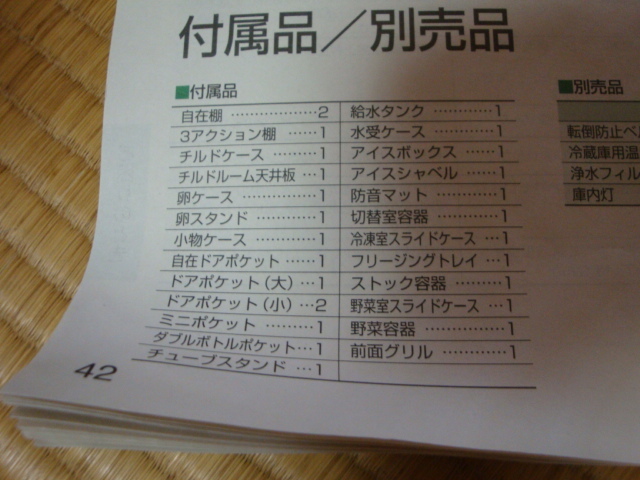 付属品／別売品
■付属品
自在棚 ………………2
3アクション棚 ……1
チルドケース …………1
チルドルーム天井板 …1
卵ケース ………………1
卵スタンド ……………1
小物ケース ……………1
自在ドアポケット ……1
ドアポケット(大) …1
ドアポケット(小) …2
ミニポケット …………1
ダブルボトルポケット…1
チューブスタンド …1
給水タンク …………1
水受ケース …………1
アイスボックス ……1
アイスシャベル ……1
防音マット …………1
切替室容器 …………1
冷凍室スライドケース …1
フリージングトレイ …1
ストック容器 ………1
野菜室スライドケース …1
野菜容器 ……………1
前面グリル …………1
■別売品
転倒防止ベ
冷蔵庫用温
浄水フィル
庫内灯
42